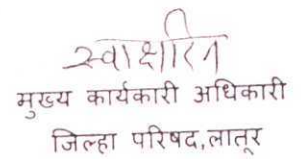 स्वाक्षरित
मुख्य कार्यकारी अधिकारी
जिल्हा परिषद,लातूर